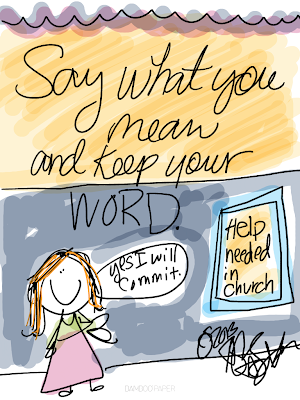 Say what you
mean
and keep your
WORD.
yes I will
commit.
Help
needed
in
church
©2013
BAMBOO PAPER